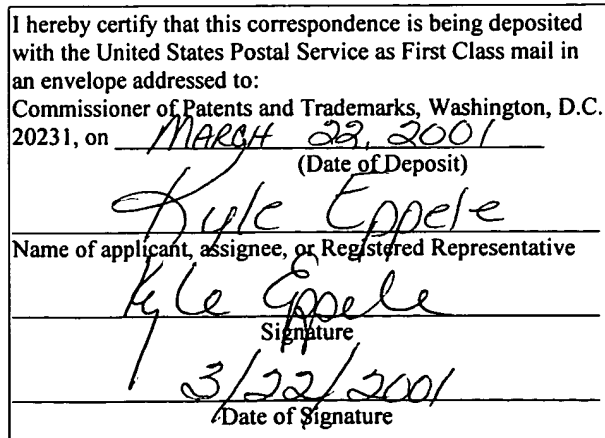 I hereby certify that this correspondence is being deposited
with the United States Postal Service as First Class mail in
an envelope addressed to:
Commissioner of Patents and Trademarks, Washington, D.C.
20231, on MARCH 22, 2001
(Date of Deposit)
Kyle Eppele
Name of applicant, assignee, or Registered Representative
Kyle Eppele
Signature
3/22/2001
Date of Signature